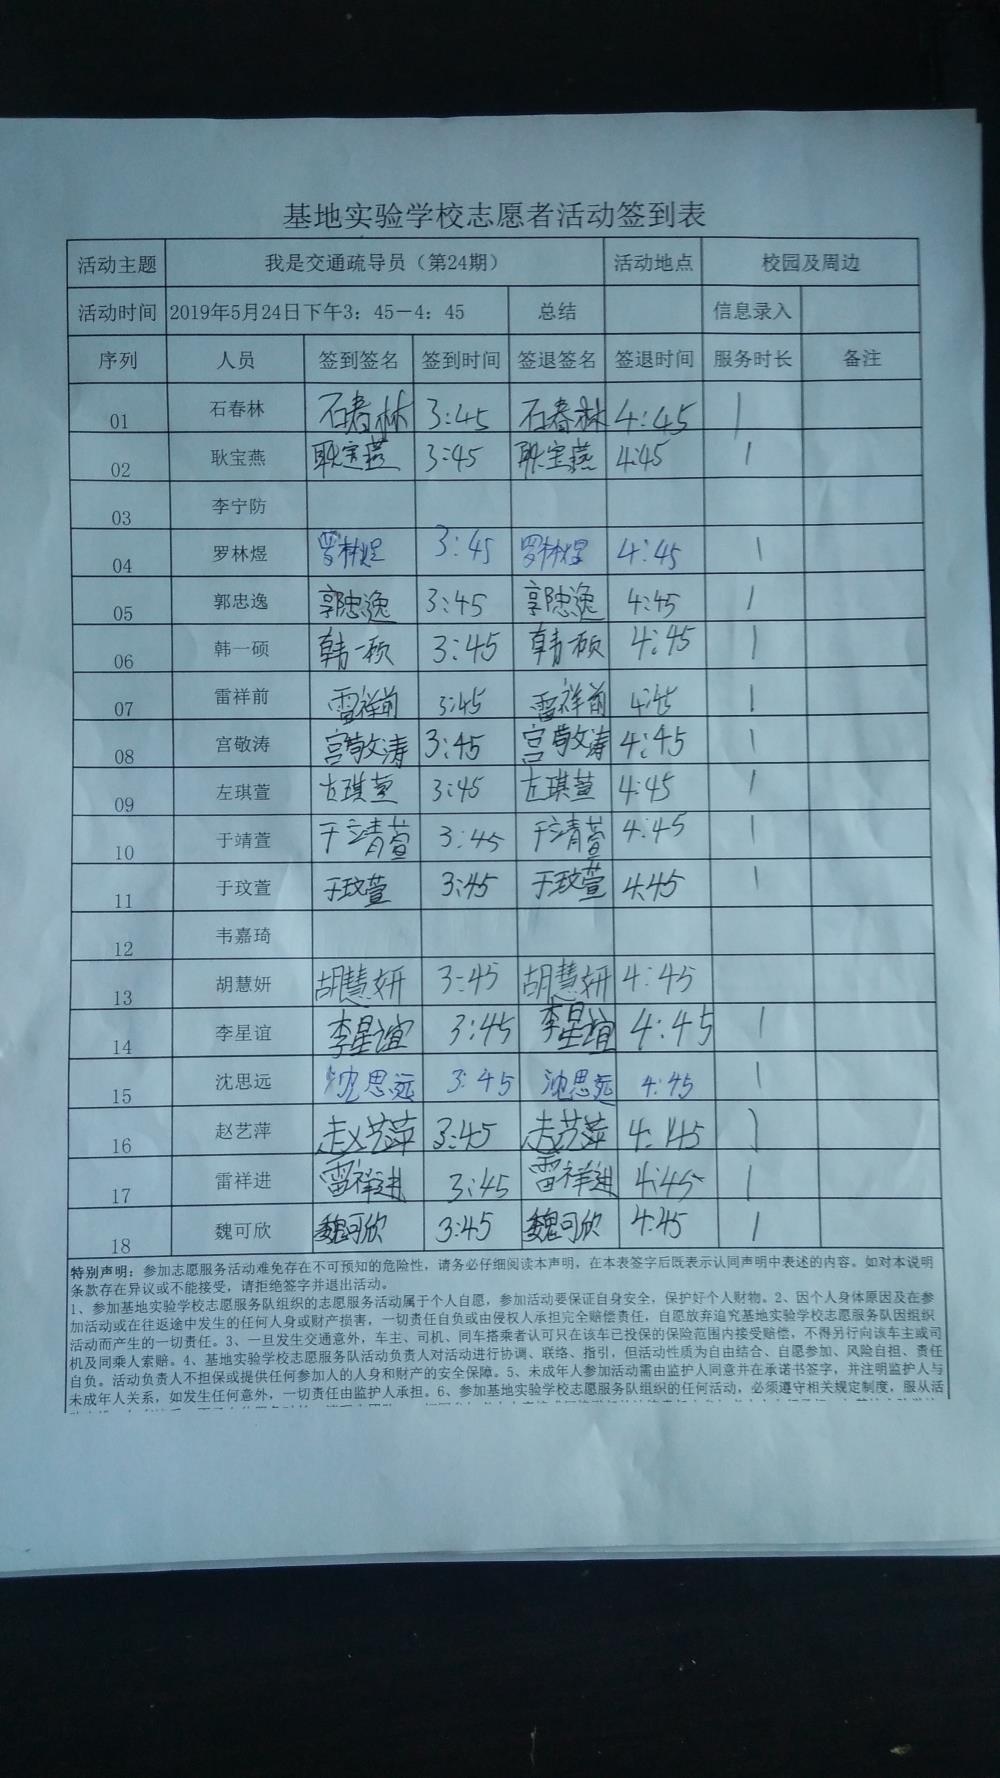 基地实验学校志愿者活动签到表
活动主题 我是交通疏导员（第24期） 活动地点 校园及周边
活动时间 2019年5月24日下午3：45－4：45 总结 信息录入
序列 人员 签到签名 签到时间 签退签名 签退时间 服务时长 备注
01 石春林 石春林 3:45 石春林 4:45 1
02 耿宝燕 耿宝燕 3:45 耿宝燕 4:45 1
03 李宁防
04 罗林煜 罗林煜 3:45 罗林煜 4:45 1
05 郭忠逸 郭忠逸 3:45 郭忠逸 4:45 1
06 韩一硕 韩一硕 3:45 韩一硕 4:45 1
07 雷祥前 雷祥前 3:45 雷祥前 4:45 1
08 宫敬涛 宫敬涛 3:45 宫敬涛 4:45 1
09 左琪萱 左琪萱 3:45 左琪萱 4:45 1
10 于靖萱 于靖萱 3:45 于靖萱 4:45 1
11 于玟萱 于玟萱 3:45 于玟萱 4:45 1
12 韦嘉琦
13 胡慧妍 胡慧妍 3:45 胡慧妍 4:45
14 李星谊 李星谊 3:45 李星谊 4:45 1
15 沈思远 沈思远 3:45 沈思远 4:45 1
16 赵艺萍 赵艺萍 3:45 赵艺萍 4:45 1
17 雷祥进 雷祥进 3:45 雷祥进 4:45 1
18 魏可欣 魏可欣 3:45 魏可欣 4:45 1
特别声明：参加志愿服务活动难免存在不可预知的危险性，请务必仔细阅读本声明，在本表签字后既表示认同声明中表述的内容。如对本说明
条款存在异议或不能接受，请拒绝签字并退出活动。
1、参加基地实验学校志愿服务队组织的志愿服务活动属于个人自愿，参加活动要保证自身安全，保护好个人财物。2、因个人身体原因及在参
加活动或在往返途中发生的任何人身或财产损害，一切责任自负或由侵权人承担完全赔偿责任，自愿放弃追究基地实验学校志愿服务队因组织
活动而产生的一切责任。3、一旦发生交通意外，车主、司机、同车搭乘者认可只在该车已投保的保险范围内接受赔偿，不得另行向该车主或司
机及同乘人索赔。4、基地实验学校志愿服务队活动负责人对活动进行协调、联络、指引，但活动性质为自由结合、自愿参加、风险自担、责任
自负。活动负责人不担保或提供任何参加人的人身和财产的安全保障。5、未成年人参加活动需由监护人同意并在承诺书签字，并注明监护人与
未成年人关系，如发生任何意外，一切责任由监护人承担。6、参加基地实验学校志愿服务队组织的任何活动，必须遵守相关规定制度，服从活